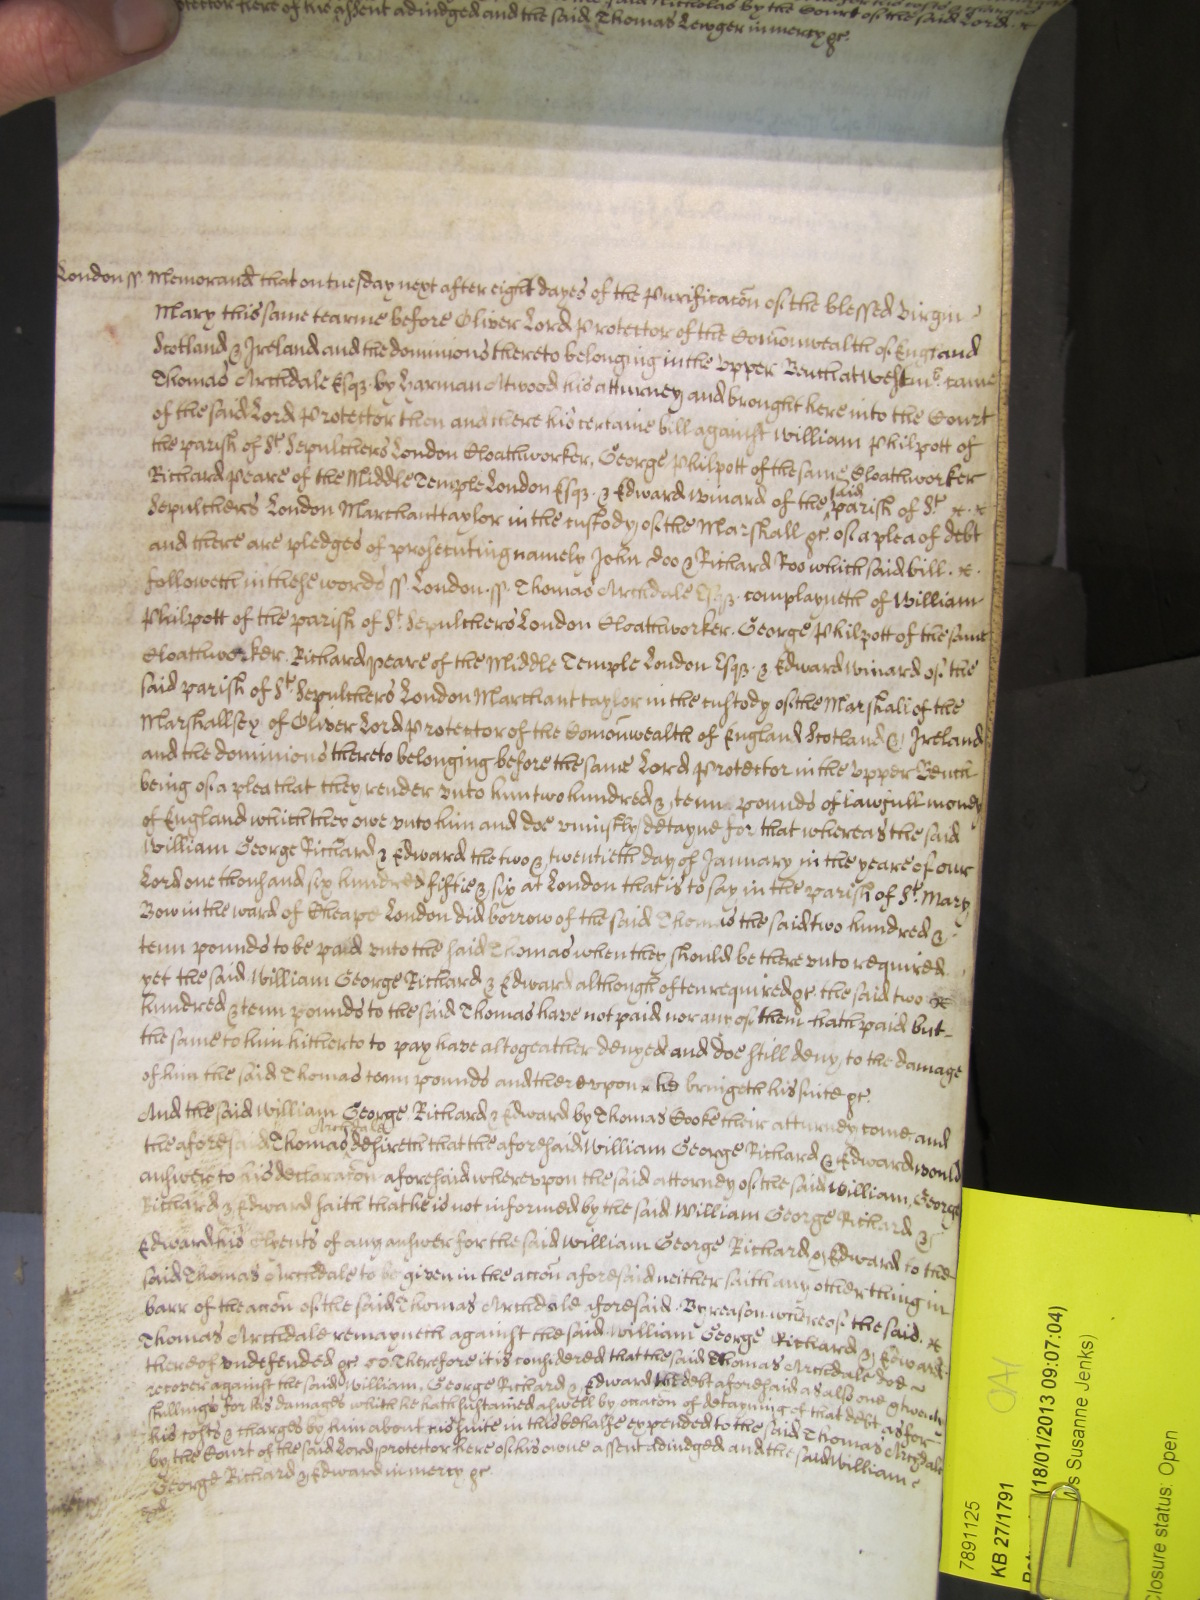 said Nicholas by the Court of the said Lord
Protector here of the assent adiudged and the said Thomas Lewger in mercy &c.
London ss. Memorand that on tuesday next after eight dayes of the Purificacōn of the blessed virgin
Mary this same tearme before Oliver Lord Protector of the Comōnwealth of England
Scotland & Ireland and the dominions thereto belonging in the vpper Bench at Westmr. came
Thomas Archdale Esqz. by Harman Atwood his atturney and brought here into the Court
of the said Lord Protector then and there his certaine bill against William Philpott of
the parish of St. Sepulchers London Cloathworker, George Philpott of the same Cloathworker
Richard Peare of the Middle Temple London Esqz. & Edward Winard of the said parish of St.
Sepulchers London Marchanttaylor in the custody of the Marshall &c. of a plea of debt
and there are pledges of prosecuting namely John Doo & Richard Roo which said bill
followeth in these words ss London ss. Thomas Archdale Esqz. complayneth of William
Philpott of the parish of St. Sepulchers London Cloathworker. George Philpott of the same
Cloathworker. Richard Peare of the Middle Temple London Esqz. & Edward Winard of the
said parish of St. Sepulchers London Marchant taylor in the custody of the Marshall of the
Marshallsey of Oliver Lord Protector of the Comōnwealth of England Scotland & Ireland
and the dominions thereto belonging before the same Lord Protector in the vpper Bench
being of a plea that they render vnto him two hundred & tenn pounds of lawfull money
of England which they owe vnto him and doe vniustly detayne for that whereas the said
William George Richard & Edward the two & twentieth day of January in the yeare of our
Lord one thousand six hundred fiftie & six at London that is to say in the parish of St. Mary
Bow in the ward of Cheape London did borrow of the said Thomas the said two hundred &
tenn pounds to be paid vnto the said Thomas when they should be there vnto required
yet the said William George Richard & Edward although often required &c. the said two
hundred & tenn pounds to the said Thomas have not paid nor any of them hath paid but
the same to him hitherto to pay have altogeather denyed and doe still deny, to the damage
of him the said Thomas tenn pounds and therevpon he bringeth his suite &c.
And the said William George Richard & Edward by Thomas Cooke their atturney come and
the aforesaid Thomas Archdale desireth that the aforesaid William George Richard & Edward would
answere to his declaracōn aforesaid wherevpon the said attorney of the said William, George
Richard & Edward saith that he is not informed by the said William George Richard &
Edward his Clyents of any answer for the said William George Richard & Edward to the
said Thomas Archdale to be given in the accōn aforesaid neither saith any other thing in
barr of the accōn of the said Thomas Archdale aforesaid. By reason whereof the said
Thomas Archdale remayneth against the said William George Richard & Edward
thereof vndefended &c. Therefore it is considered that the said Thomas Archdale doe
recover against the said William, George Richard & Edward his debt aforesaid as also one & twenty
shillings for his damages which he hath sustained aswell by occacōn of detayning of that debt as for
his costs & charges by him about his suite in this behalfe expended to the said Thomas Archdale
by the Court of the said Lord protector here of his owne assent adiudged and the said William
George Richard & Edward in mercy &c.
7891125
KB 27/1791
(18/01/2013 09:07:04)
s Susanne Jenks)
Closure status: Open